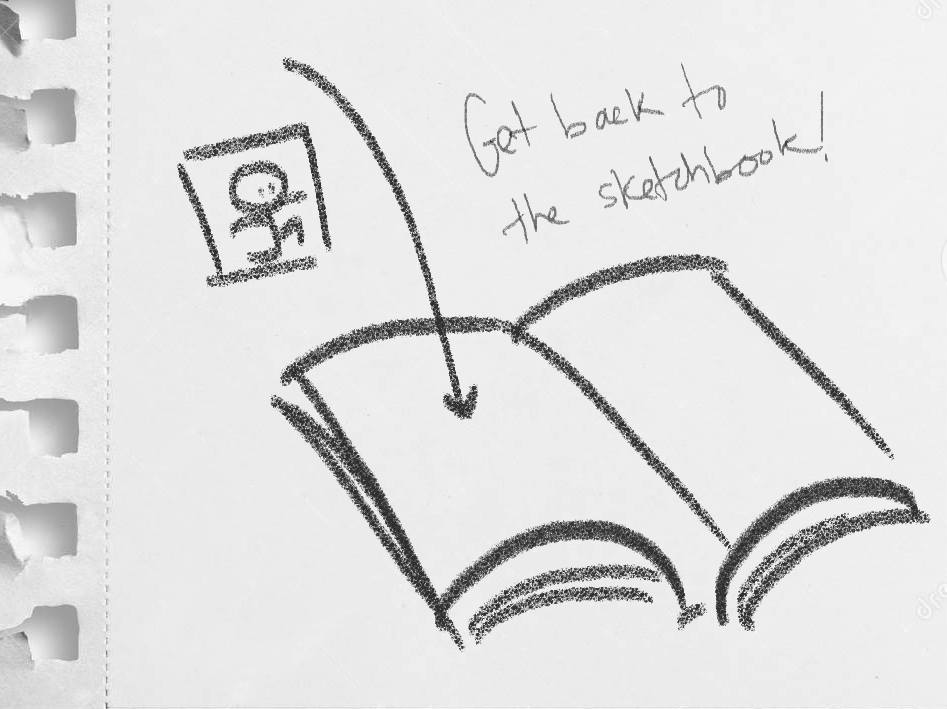 Get back to
the sketchbook!